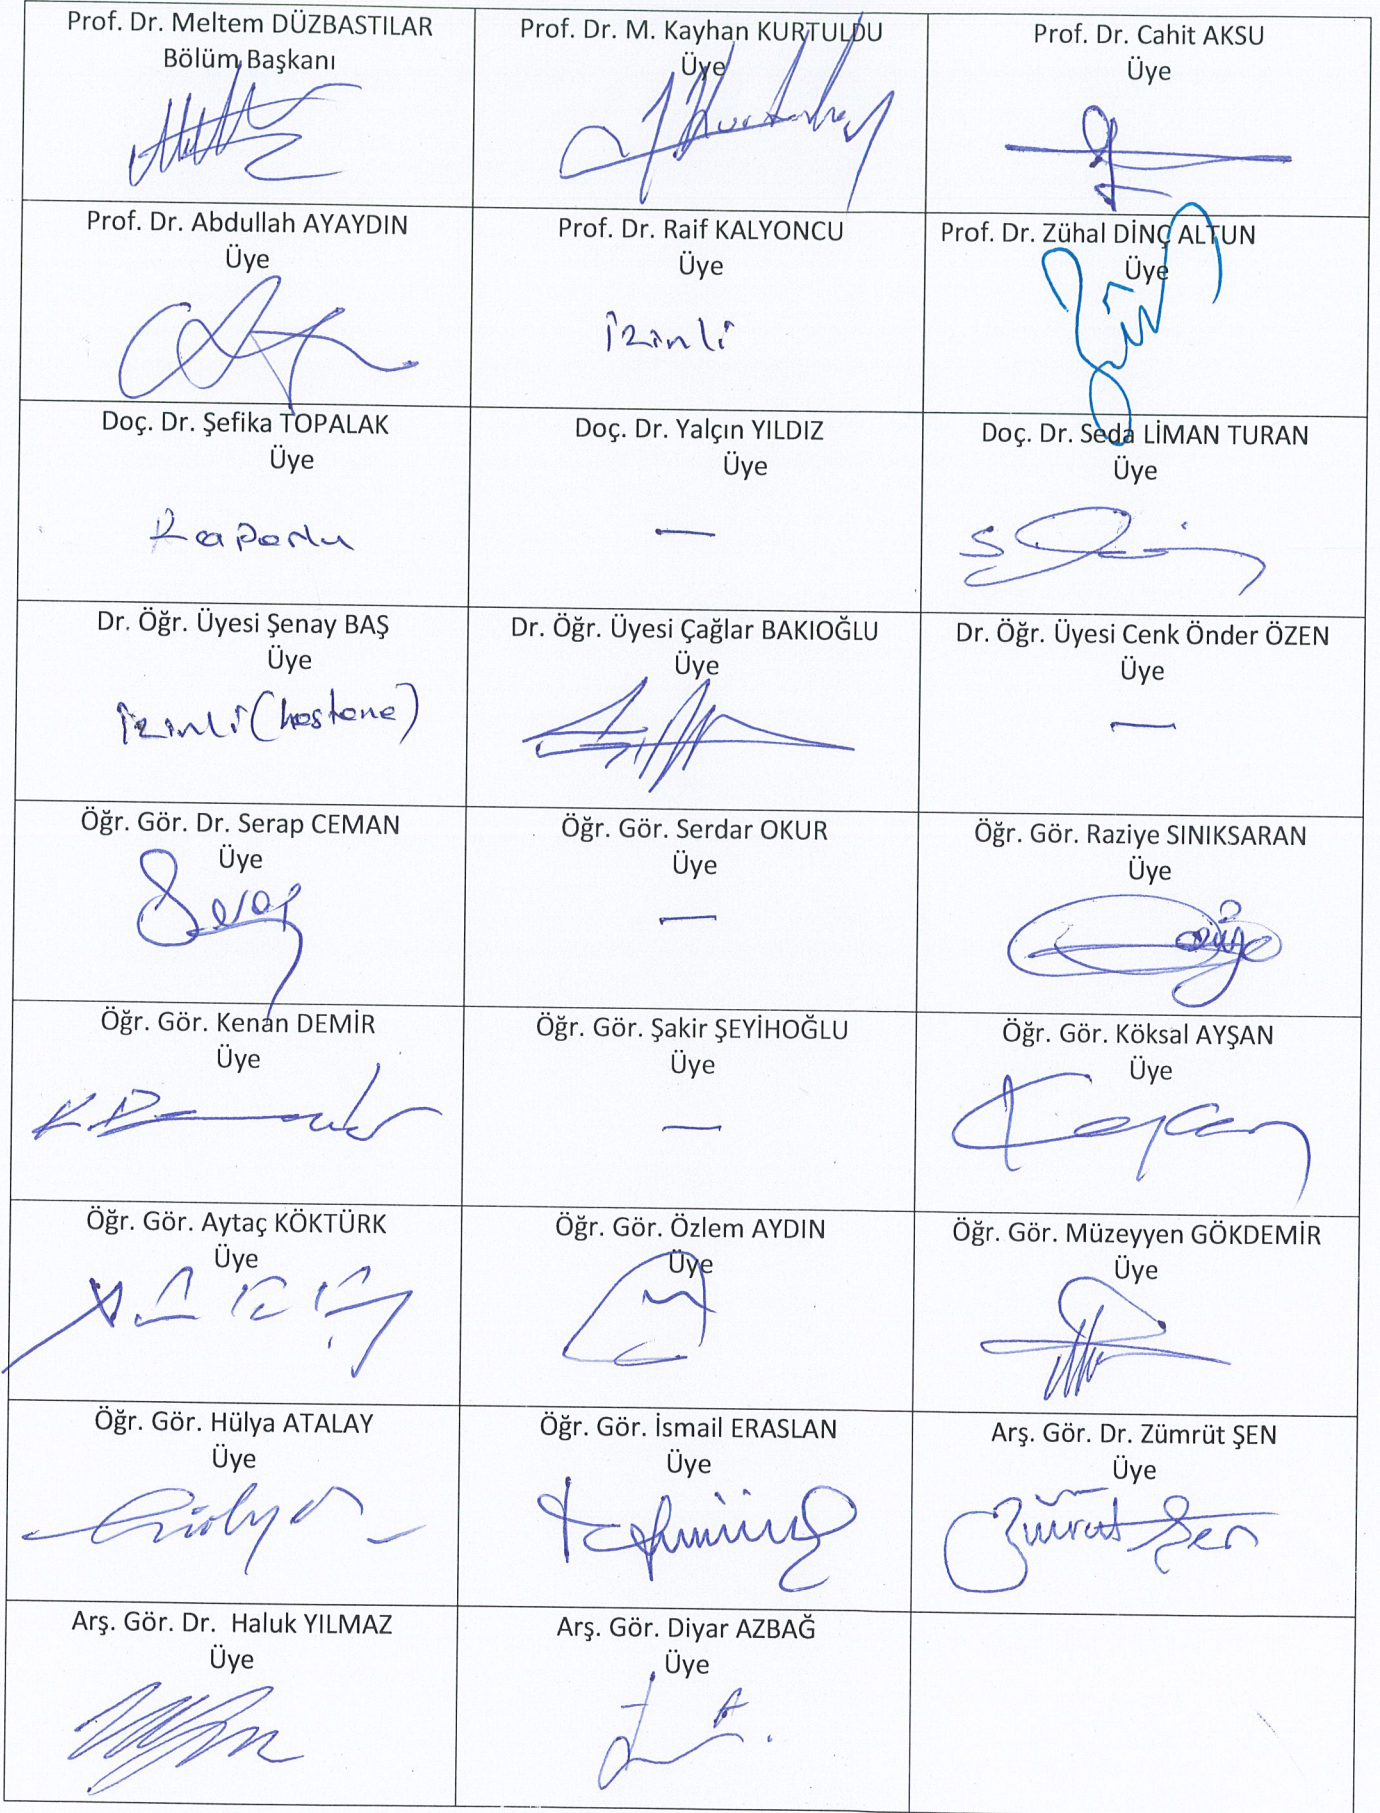 Prof. Dr. Meltem DÜZBASTILAR
Bölüm Başkanı
Prof. Dr. M. Kayhan KURTULDU
Üye
Prof. Dr. Cahit AKSU
Üye
Prof. Dr. Abdullah AYAYDIN
Üye
Prof. Dr. Raif KALYONCU
Üye
izinli
Prof. Dr. Zühal DİNÇ ALTUN
Üye
Doç. Dr. Şefika TOPALAK
Üye
Raporlu
Doç. Dr. Yalçın YILDIZ
Üye
—
Doç. Dr. Seda LİMAN TURAN
Üye
Dr. Öğr. Üyesi Şenay BAŞ
Üye
izinli (hastane)
Dr. Öğr. Üyesi Çağlar BAKIOĞLU
Üye
Dr. Öğr. Üyesi Cenk Önder ÖZEN
Üye
—
Öğr. Gör. Dr. Serap CEMAN
Üye
Serap
Öğr. Gör. Serdar OKUR
Üye
—
Öğr. Gör. Raziye SINIKSARAN
Üye
Öğr. Gör. Kenan DEMİR
Üye
Öğr. Gör. Şakir ŞEYİHOĞLU
Üye
—
Öğr. Gör. Köksal AYŞAN
Üye
Öğr. Gör. Aytaç KÖKTÜRK
Üye
Öğr. Gör. Özlem AYDIN
Üye
Öğr. Gör. Müzeyyen GÖKDEMİR
Üye
Öğr. Gör. Hülya ATALAY
Üye
Öğr. Gör. İsmail ERASLAN
Üye
Arş. Gör. Dr. Zümrüt ŞEN
Üye
Zümrüt Şen
Arş. Gör. Dr. Haluk YILMAZ
Üye
Arş. Gör. Diyar AZBAĞ
Üye